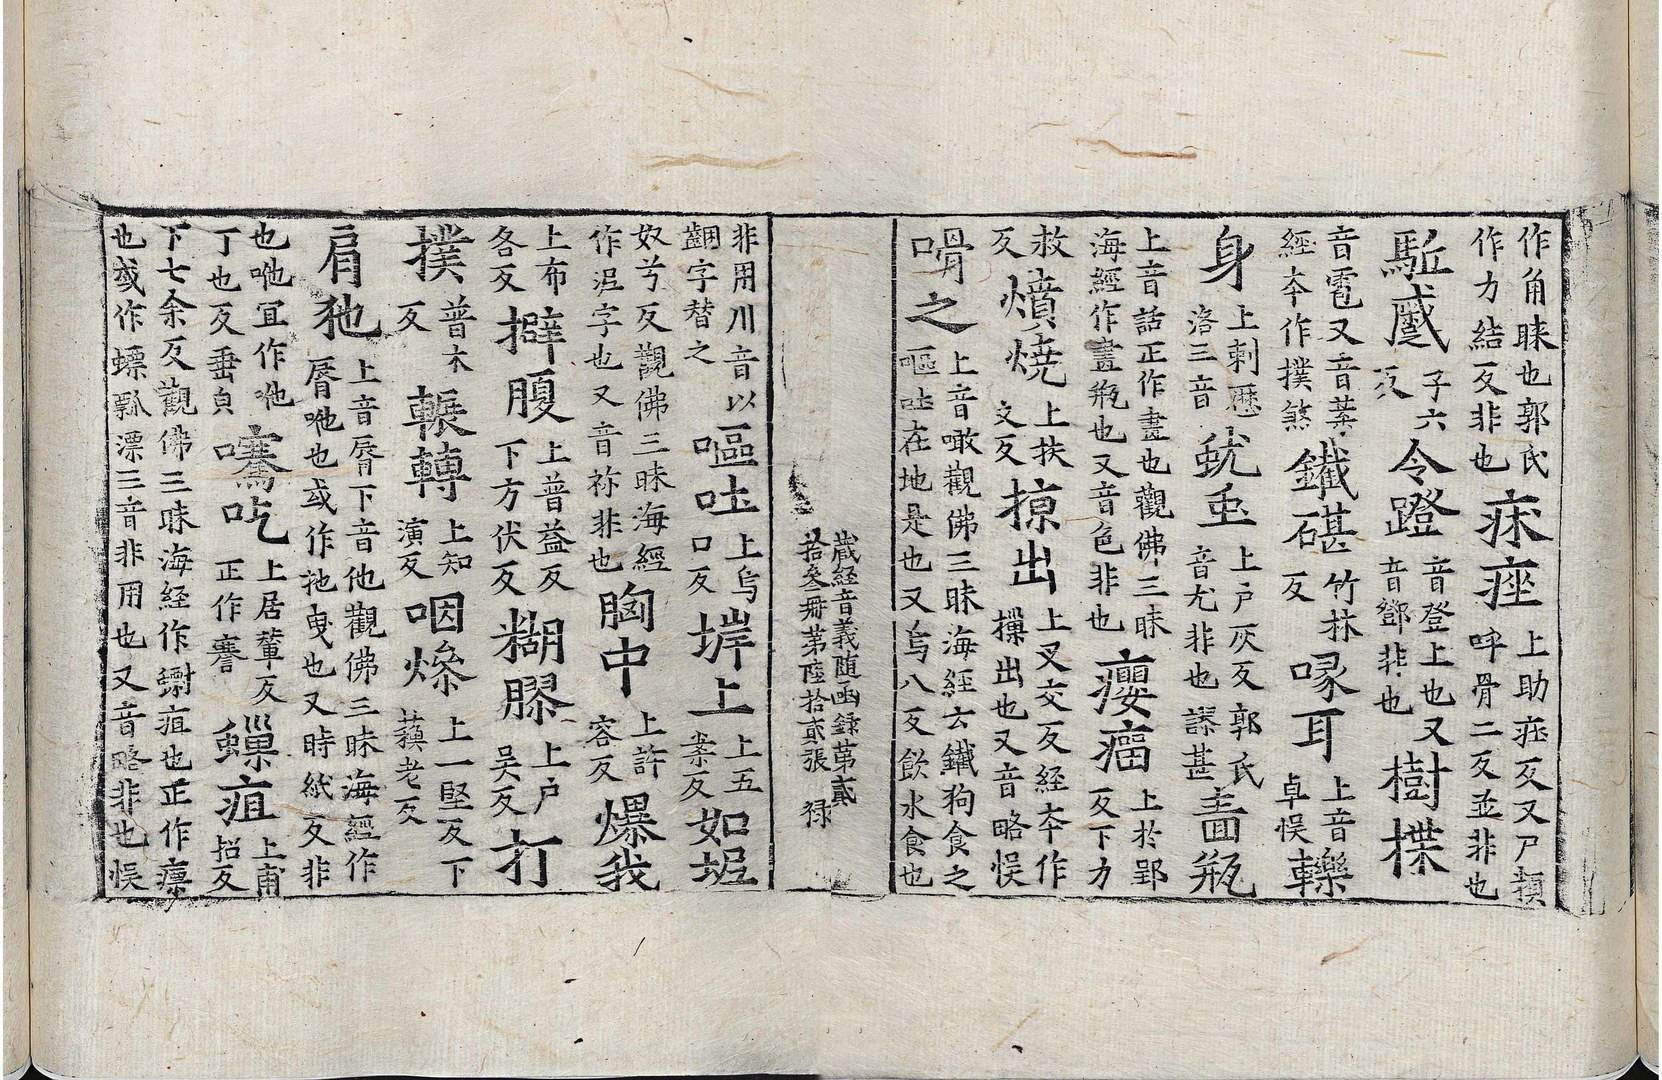 作角昧也郭氏作力結反非也 上助疘反又尸類呼骨二反並非也
子六反 令蹬 音登上也又音鄧非也 樹
音雹又音 経夲作撲煞 鐵碪 竹林反 喙耳 上音卓悮 轢
身 上剌歷洛三音 蚘䖝 上户灰反郭氏音尤非也謬甚 畵瓶
上音話正作畫也觀佛三昧海經作畫瓶也又音色非也 癭㾔 上於郢反下力
救反 燌燒 上扶文反 掠出 上叉交反経夲作摷出也又音略悮
嗗之 上音 觀佛三昧海經云鐵狗食之嘔吐在地是也又烏八反飲水食也
藏経音義随函録第貳拾叁冊第陸拾貳張 禄
非用川音以齫字替之 嘔吐 上烏口反 垾上 上五案反 如坭
奴兮反觀佛三昧海經作泥字也又音祢非也 胸中 上許容反 爆我
上布各反 擗腹 上普益反下方伏反 糊膠 上户吴反 打
撲 普木反 輾轉 上知演反 咽燥 上一堅反下蘓老反
肩 上音脣下音他觀佛三昧海經作脣哋也或作 曳也又時紙反非
也哋冝作哋丁也反垂皃 吃 上居輦反正作謇 螵疽 上甫招反
下七余反觀佛三昧海経作 疽也正作瘭也或作螵瓢漂三音非用也又音略非也悮